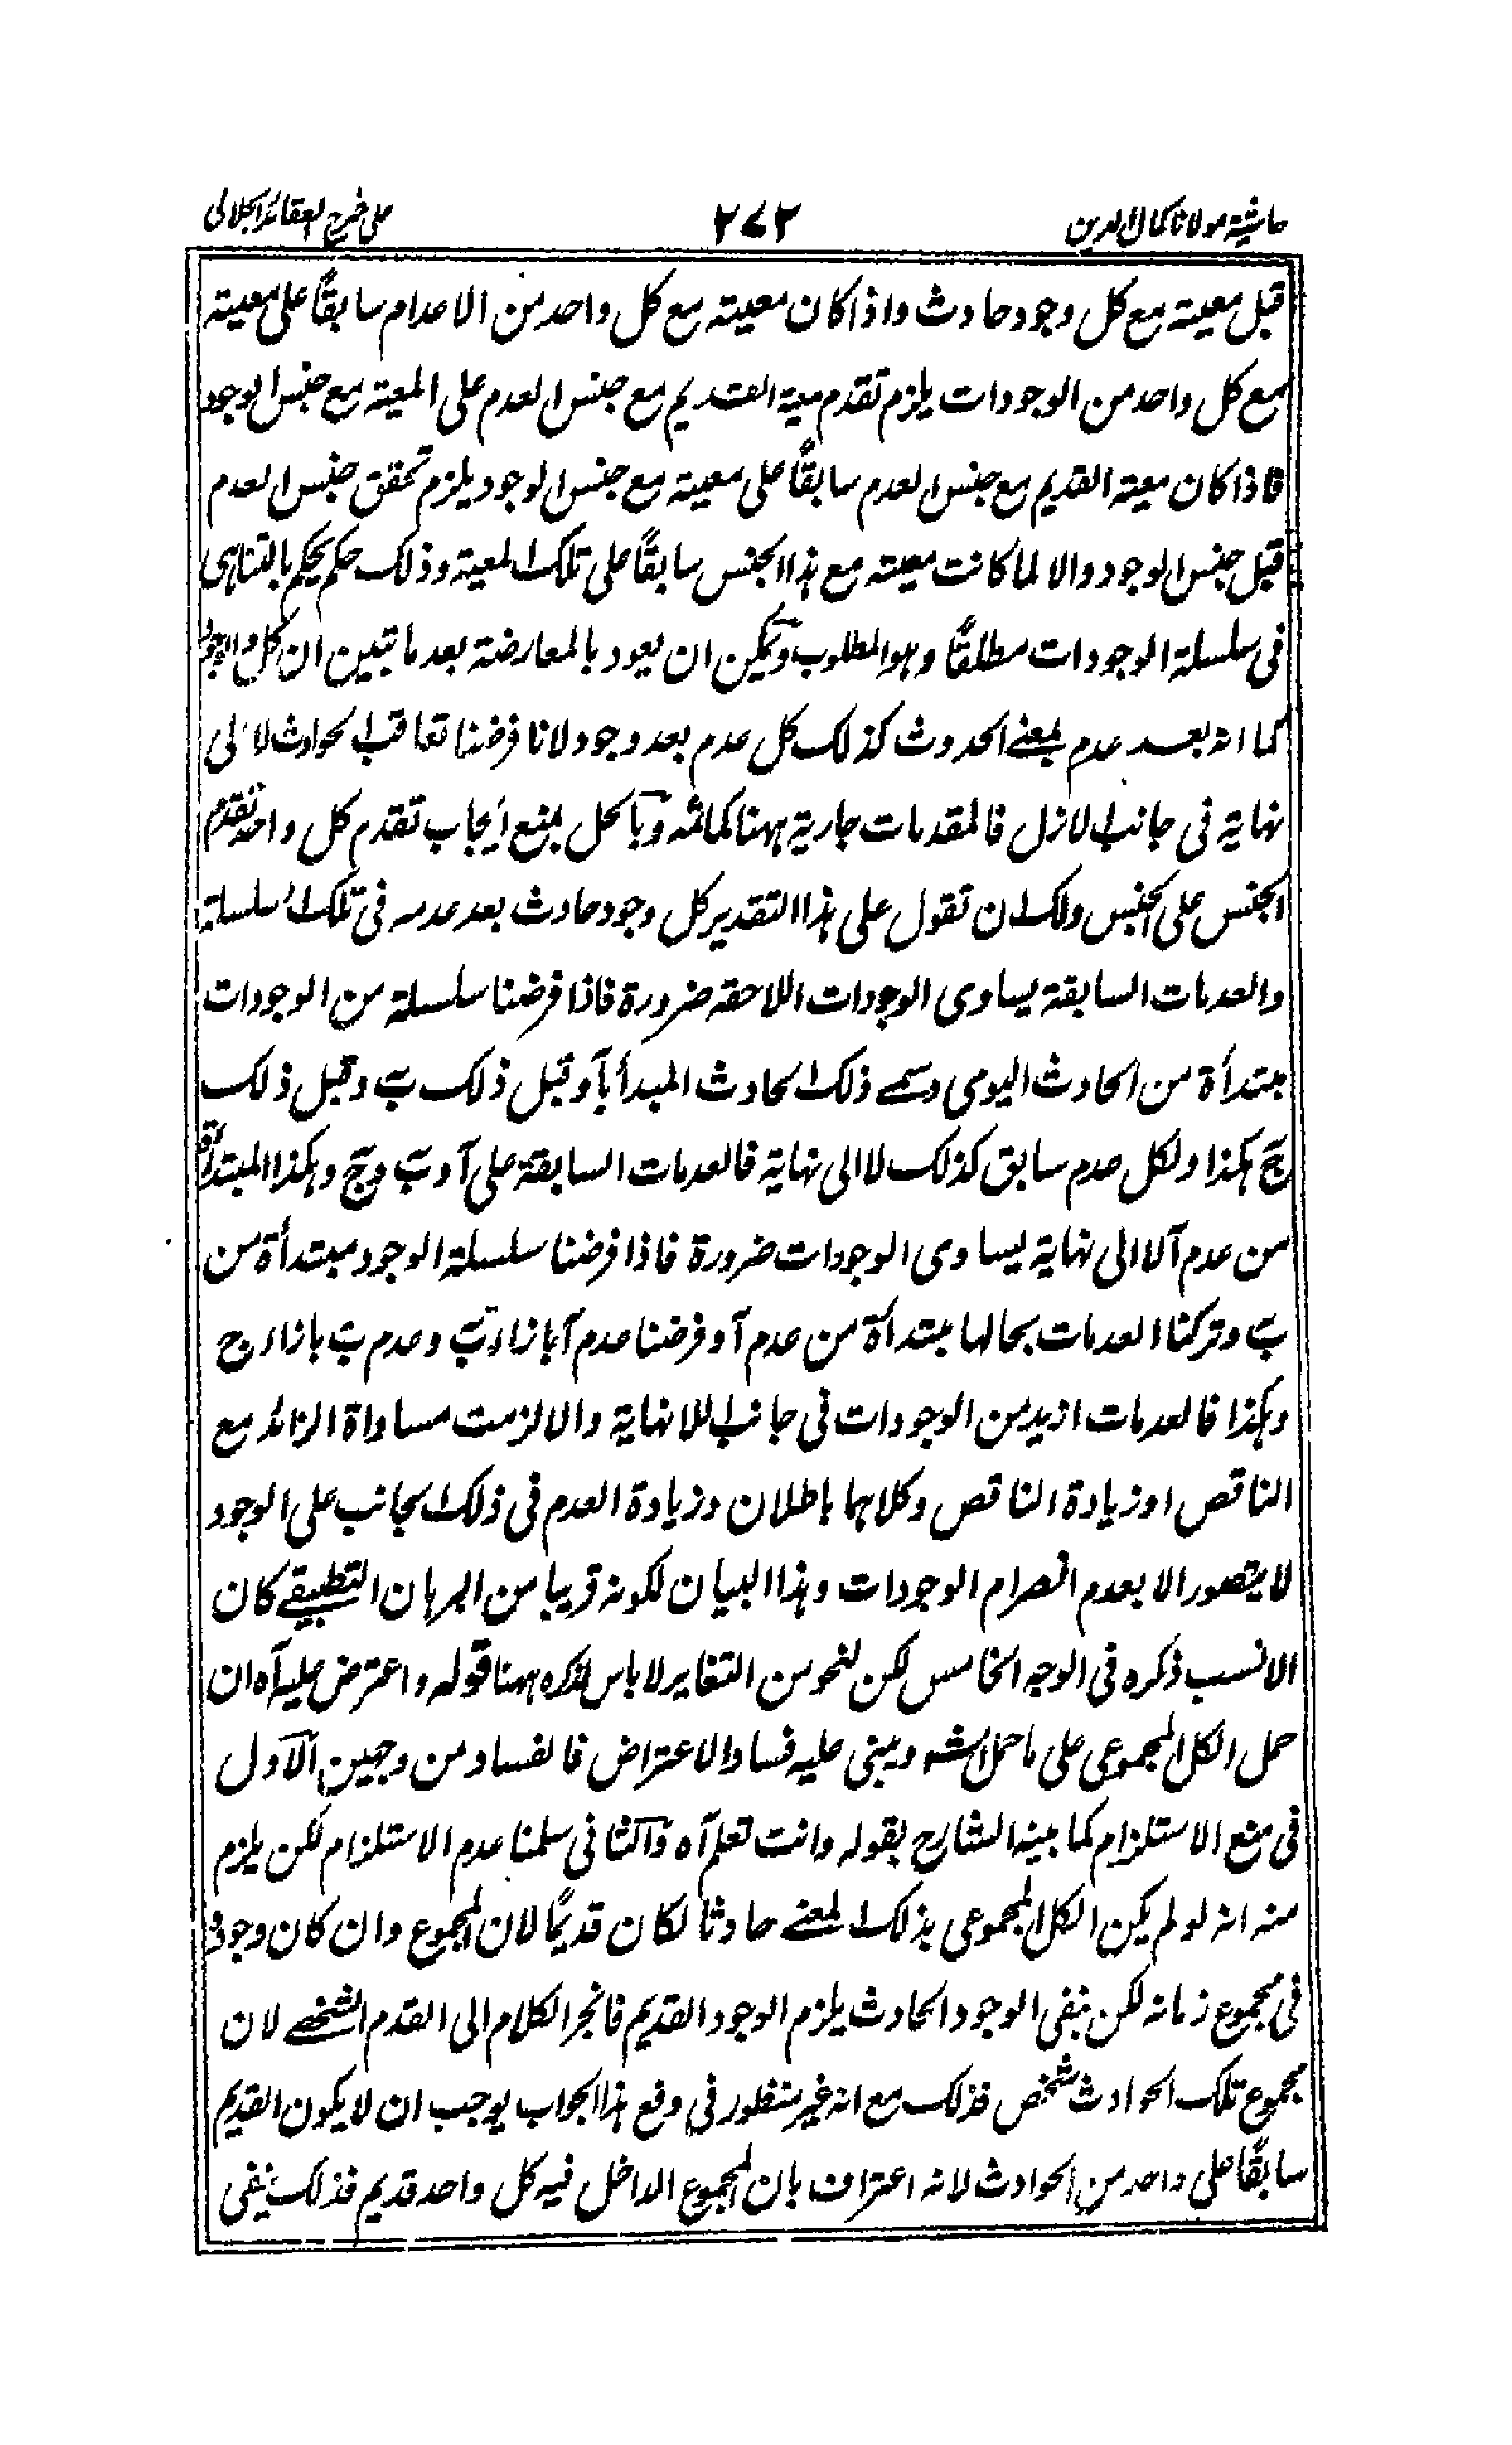 حاشية مولانا كمال الدين
٢٧٢
على شرح العقائد الجلالى
قبل معيته مع كل وجود حادث واذا كان معيته مع كل واحد من الاعدام سابقًا على معيته
مع كل واحد من الوجودات يلزم تقدم معية القديم مع جنس العدم على المعية مع جنس الوجود
فاذا كان معية القديم مع جنس العدم سابقًا على معيته مع جنس الوجود يلزم تحقق جنس العدم
قبل جنس الوجود والا لما كانت معيته مع هذا الجنس سابقًا على تلك المعية وذلك حكم يحكم بالتناهى
فى سلسلة الوجودات مطلقًا وهو المطلوب ويمكن ان يعود بالمعارضة بعد ما تبين ان كل وجود
كما انه بعد عدم بمعنى الحدوث كذلك كل عدم بعد وجود لانا فرضنا تعاقب الحوادث لا الى
نهاية فى جانب الازل فالمقدمات جارية ههنا كما ثمه وبالحل بمنع ايجاب تقدم كل واحد تقدم
الجنس على الجنس ولك ان تقول على هذا التقدير كل وجود حادث بعد عدمه فى تلك السلسلة
والعدمات السابقة يساوى الوجودات اللاحقه ضرورة فاذا فرضنا سلسلة من الوجودات
مبتدأة من الحادث اليومى وسمى ذلك الحادث المبدأ بآ وقبل ذلك ب وقبل ذلك
ج هكذا ولكل عدم سابق كذلك لا الى نهاية فالعدمات السابقة على آ وب وج وهكذا المبتدأة
من عدم آ لا الى نهاية يساوى الوجودات ضرورة فاذا فرضنا سلسلة الوجود مبتدأة من
ب وتركنا العدمات بحالها مبتدأة من عدم آ وفرضنا عدم آ بازاء ب وعدم ب بازاء ج
وهكذا فالعدمات ازيد من الوجودات فى جانب اللانهاية والا لزمت مساواة الزائد مع
الناقص او زيادة الناقص وكلاهما باطلان وزيادة العدم فى ذلك الجانب على الوجود
لا يتصور الا بعدم انصرام الوجودات وهذا البيان لكونه قريبا من البرهان التطبيقى كان
الانسب ذكره فى الوجه الخامس لكن لنحو من التغاير لا باس لذكره ههنا قوله واعترض عليه آه ان
حمل الكل المجموعى على ما حمل الشه ويبنى عليه فساد الاعتراض فالفساد من وجهين الاول
فى منع الاستلزام كما بينه الشارح بقوله وانت تعلم آه والثانى سلمنا عدم الاستلزام لكن يلزم
منه انه لو لم يكن الكل المجموعى بذلك المعنى حادثا لكان قديمًا لان المجموع وان كان وجوده
فى مجموع زمانه لكن بنفى الوجود الحادث يلزم الوجود القديم فانجر الكلام الى القدم الشخصى لان
مجموع تلك الحوادث شخص فذلك مع انه غير منظور فى دفع هذا الجواب يوجب ان لا يكون القديم
سابقًا على واحد من الحوادث لانه اعتراف بان المجموع الداخل فيه كل واحد قديم فذلك ينفى